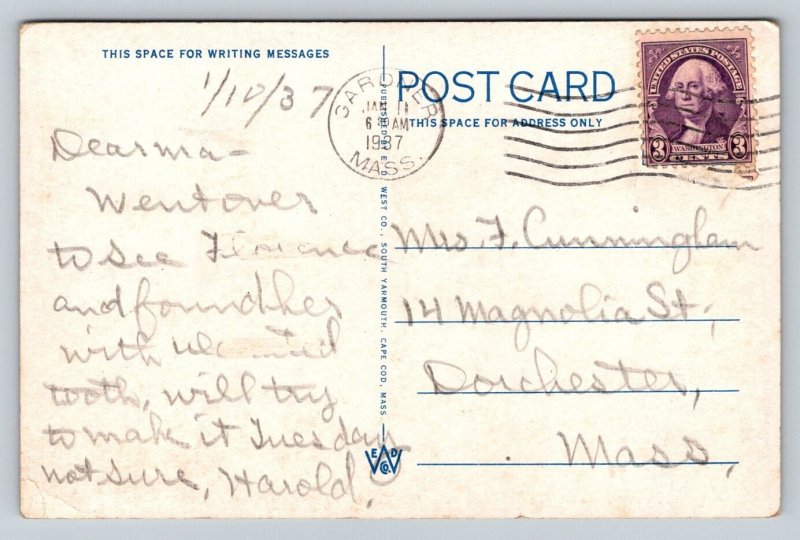 THIS SPACE FOR WRITING MESSAGES
1/10/37
Dear ma –
Went over
to see Florence
and found her
with ulcerated
tooth, will try
to make it Tuesday
not sure, Harold.
PUBLISHED BY E. D. WEST CO., SOUTH YARMOUTH, CAPE COD, MASS.
E D
W
CO.
GARDNER
JAN 11
6 AM
1937
MASS.
POST CARD
THIS SPACE FOR ADDRESS ONLY
UNITED STATES POSTAGE
WASHINGTON
3 CENTS 3
Mrs. F. Cunningham
14 Magnolia St.,
Dorchester,
Mass,